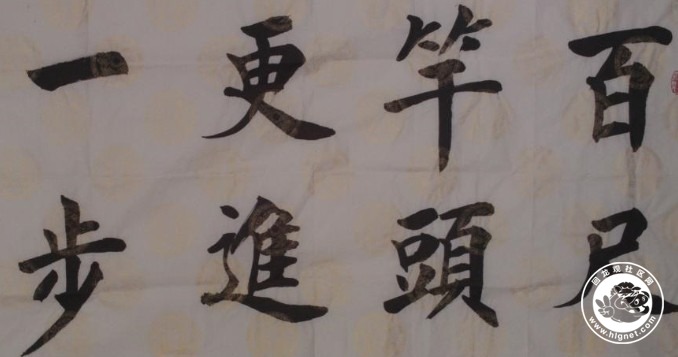 百尺
竿頭
更進
一步
回龙观社区网
www.hlgnet.com